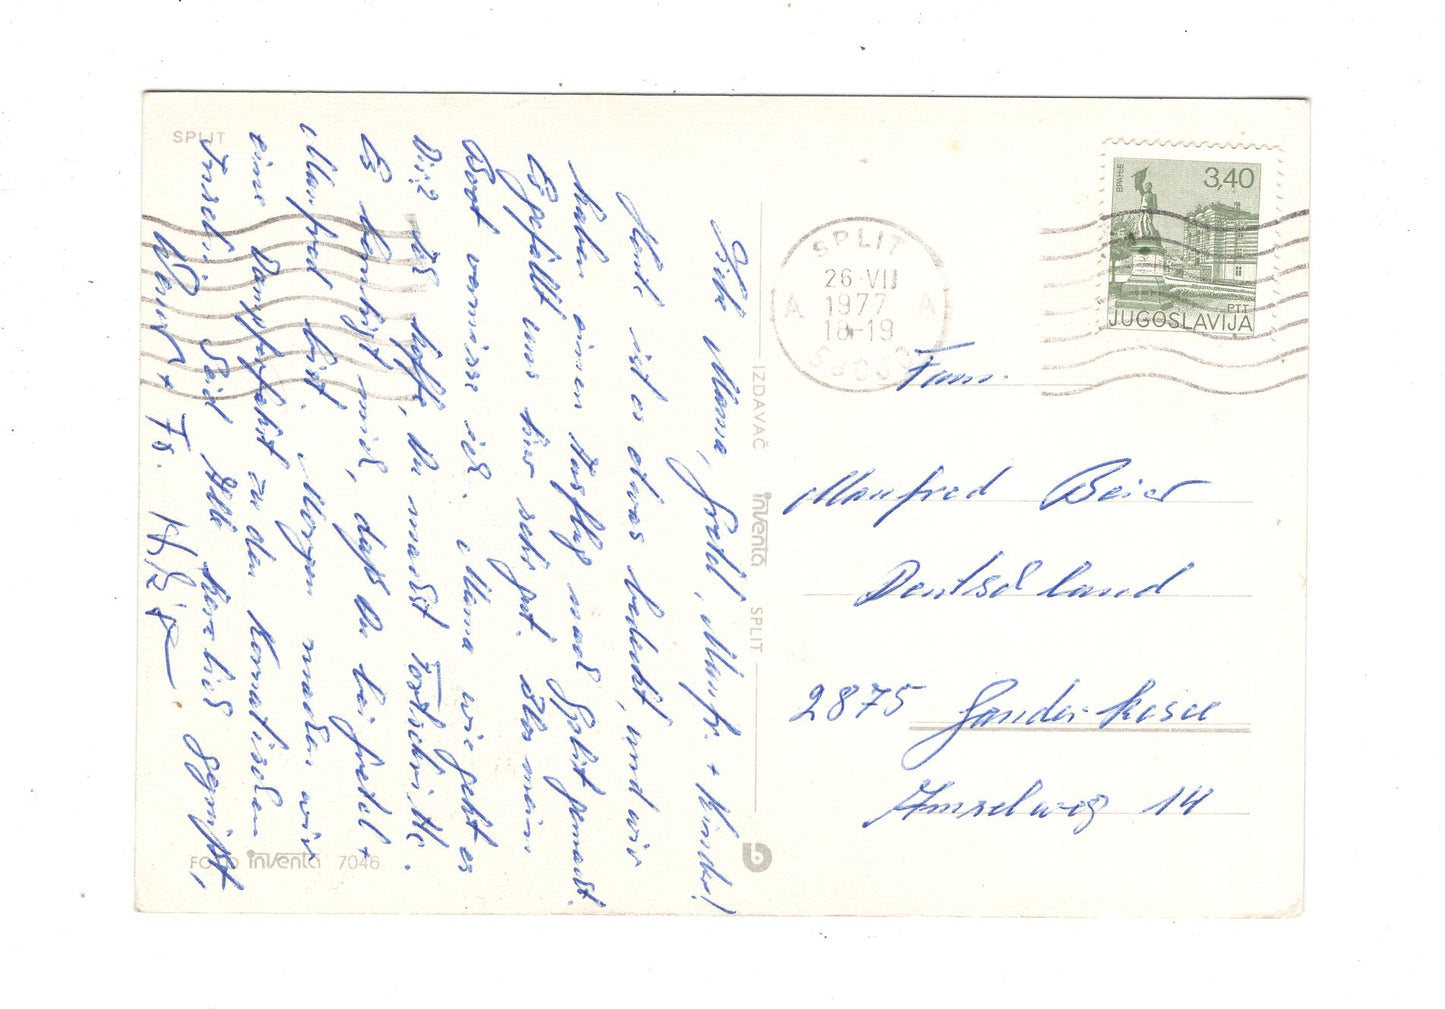 SPLIT
Liebe Mama, Gretel, Manfr. + Kinder!
Heute ist es etwas bedeckt, und wir
haben einen Ausflug nach Split gemacht.
Es gefällt uns hier sehr gut. Blos mein
Boot vermisse ich. Mama wie geht es
Dir? Ich hoffe, Du machst Fortschritte.
Es beruhigt mich, daß Du bei Gretel +
Manfred bist. Morgen machen wir
eine Dampferfahrt zu den Kornatischen
Inseln. Seid Alle herzlich gegrüßt,
FOTO inventa 7046
IZDAVAČ inventa SPLIT
SPLIT
26·VII
1977
18-19
A A
ВРАЊЕ
3,40
PTT
JUGOSLAVIJA
Fam.
Manfred Beier
Deutschland
2875 Ganderkesee
Amselweg 14